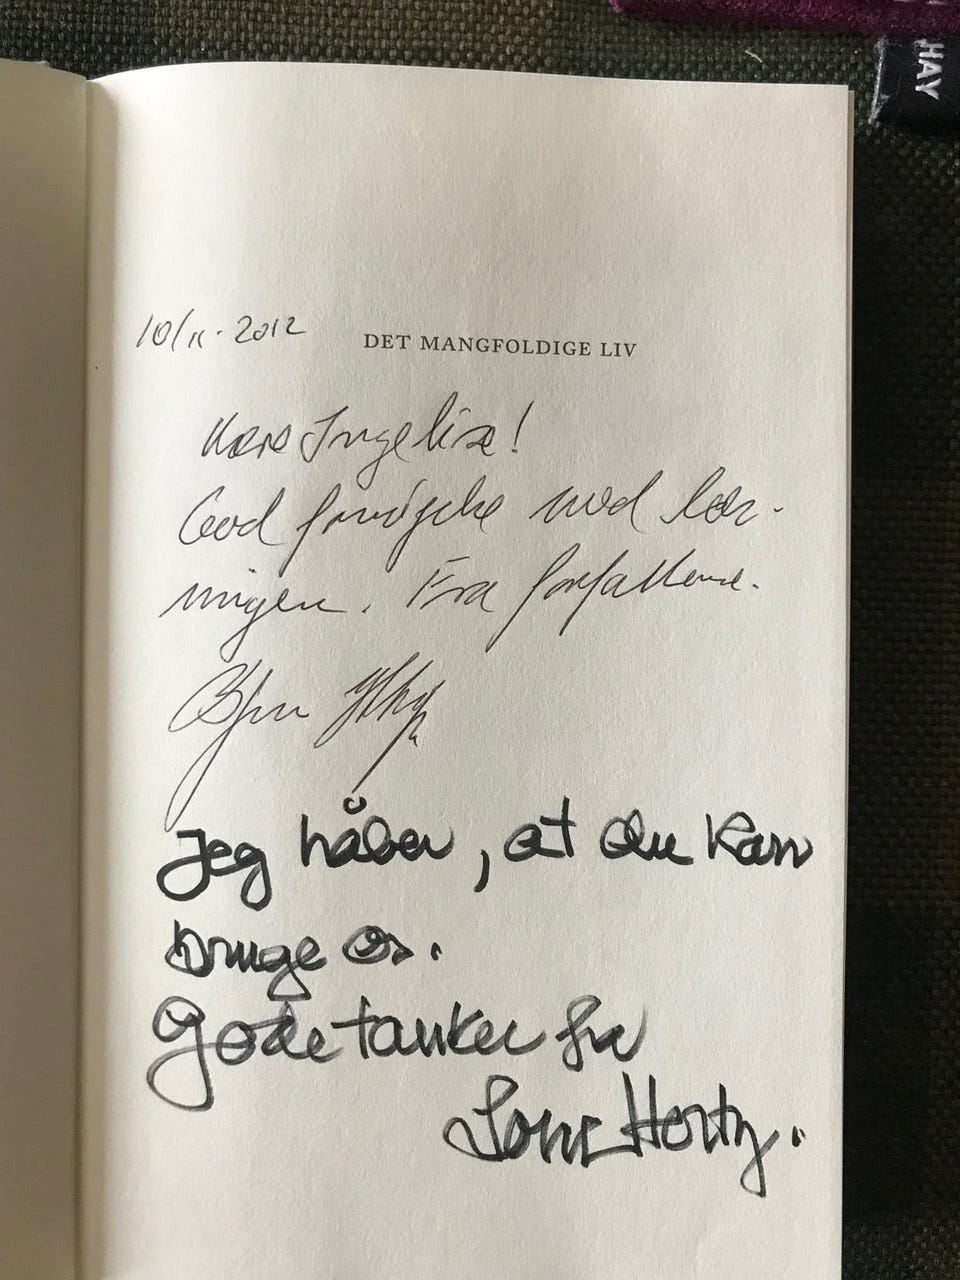 HAY
10/11-2012
DET MANGFOLDIGE LIV
Kære Ingelise!
God fornøjelse med læs-
ningen. Fra forfatteren.
Jeg håber, at du kan
bruge os.
Gode tanker fra
Lone Hertz.